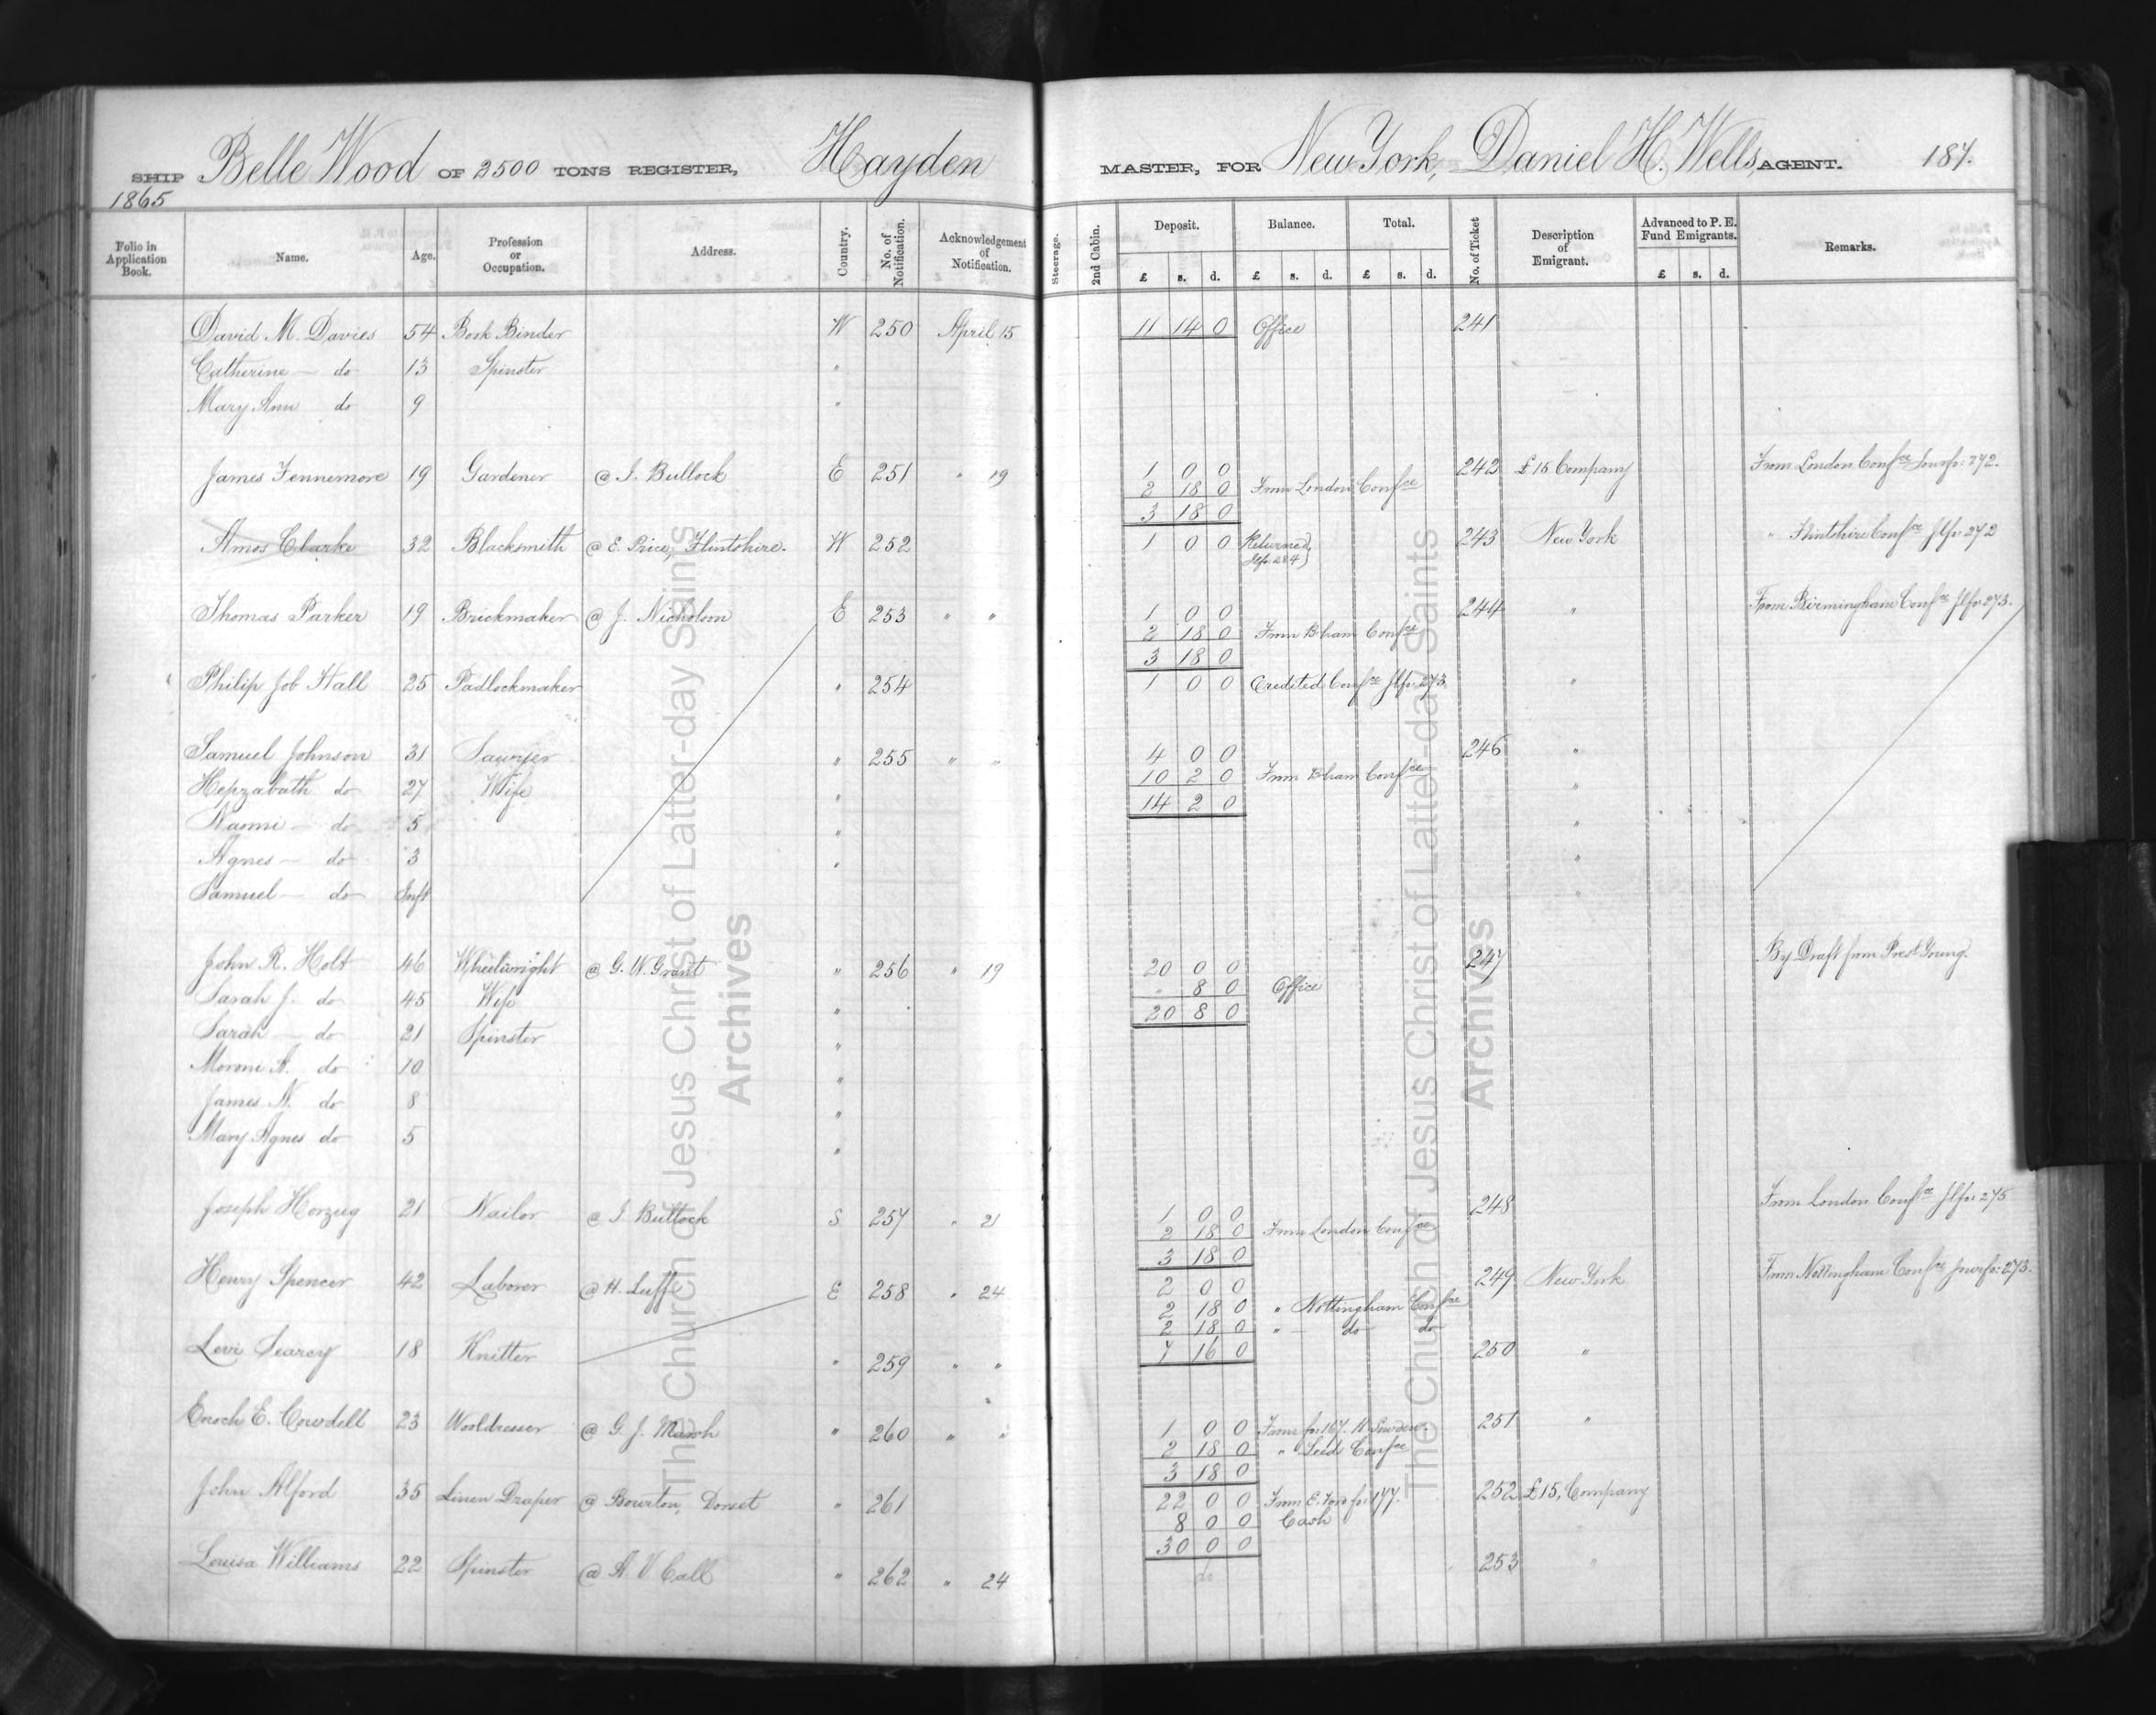 SHIP Belle Wood OF 2500 TONS REGISTER, Hayden MASTER, FOR New York, Daniel H. Wells, AGENT. 187.
1865
Folio in Application Book. Name. Age. Profession or Occupation. Address. Country. No. of Notification. Acknowledgement of Notification. Steerage. 2nd Cabin. Deposit. Balance. Total. No. of Ticket Description of Emigrant. Advanced to P. E. Fund Emigrants. Remarks.
£ s. d. £ s. d. £ s. d. £ s. d.
David M. Davies 54 Book Binder W 250 April 15 11 14 0 Office 241
Catherine — do 13 Spinster "
Mary Ann do 9 "
James Fennemore 19 Gardener @ I. Bullock E 251 " 19 1 0 0 242 £15 Company From London Confce Jour fo: 272.
2 18 0 From London Confce
3 18 0
Amos Clarke 32 Blacksmith @ E. Price, Flintshire. W 252 1 0 0 Returned, 243 New York " Flintshire Confce Jl fo 272
Jl fo. 284)
Thomas Parker 19 Brickmaker @ J. Nicholson E 253 " " 1 0 0 244 " From Birmingham Confce Jl fo 273.
2 18 0 From B'ham Confce
3 18 0
Philip Job Hall 25 Padlockmaker " 254 1 0 0 Credited Confce Jl fo 273 "
Samuel Johnson 31 Sawyer " 255 " " 4 0 0 246 "
Hepzabath do 27 Wife " 10 2 0 From B'ham Confce "
Naomi — do 5 " 14 2 0 "
Agnes — do 3 " "
Samuel — do Inft "
John R. Holt 46 Wheelwright @ G. W. Grant " 256 " 19 20 0 0 247 By Draft from Prest Young.
Sarah J. do 45 Wife " " 8 0 Office
Sarah — do 21 Spinster " 20 8 0
Moroni A. do 10 "
James N. do 8 "
Mary Agnes do 5 "
Joseph Herzug 21 Nailor @ I. Bullock S 257 " 21 1 0 0 248 From London Confce Jl fo: 275
2 18 0 From London Confce
3 18 0
Henry Spencer 42 Laborer @ H. Luff E 258 " 24 2 0 0 249 New York From Nottingham Confce Jour fo: 273.
2 18 0 " Nottingham Confce
2 18 0 " do do
Levi Searcy 18 Knitter " 259 " " 7 16 0 250 "
Enoch E. Cowdell 23 Wooldresser @ G. J. Marsh " 260 " " 1 0 0 From fo 167. 251 "
2 18 0 " Leeds Confce
3 18 0
John Alford 35 Linen Draper @ Bourton, Dorset " 261 22 0 0 From E. Ford fo: 177. 252 £15, Company
8 0 0 Cash
30 0 0
Louisa Williams 22 Spinster @ A. V. Call " 262 " 24 do 253 "
The Church of Jesus Christ of Latter-day Saints
Archives
The Church of Jesus Christ of Latter-day Saints
Archives